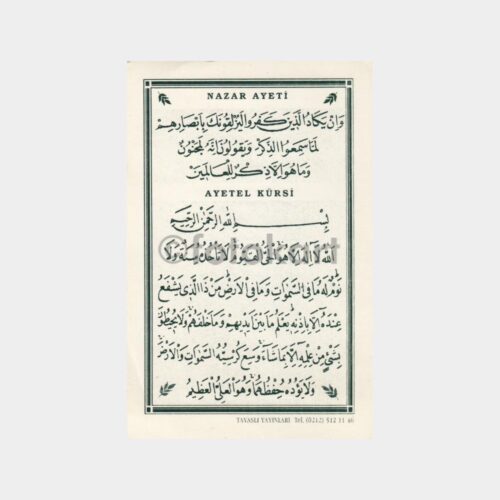 NAZAR AYETİ
وَاِنْ يَكَادُ الَّذِينَ كَفَرُوا لَيُزْلِقُونَكَ بِاَبْصَارِهِمْ
لَمَّا سَمِعُوا الذِّكْرَ وَيَقُولُونَ اِنَّهُ لَمَجْنُونٌ
وَمَا هُوَ اِلَّا ذِكْرٌ لِلْعَالَمِينَ
AYETEL KÜRSİ
بِسْمِ اللهِ الرَّحْمٰنِ الرَّحِيمِ
اَللهُ لَا اِلٰهَ اِلَّا هُوَ الْحَيُّ الْقَيُّومُ لَا تَأْخُذُهُ سِنَةٌ وَلَا
نَوْمٌ لَهُ مَا فِي السَّمٰوَاتِ وَمَا فِي الْاَرْضِ مَنْ ذَا الَّذِي يَشْفَعُ
عِنْدَهُ اِلَّا بِاِذْنِهِ يَعْلَمُ مَا بَيْنَ اَيْدِيهِمْ وَمَا خَلْفَهُمْ وَلَا يُحِيطُونَ
بِشَيْءٍ مِنْ عِلْمِهِ اِلَّا بِمَا شَاءَ وَسِعَ كُرْسِيُّهُ السَّمٰوَاتِ وَالْاَرْضَ
وَلَا يَؤُدُهُ حِفْظُهُمَا وَهُوَ الْعَلِيُّ الْعَظِيمُ
TAVASLI YAYINLARI Tel. (0212) 512 11 46
©fotokart